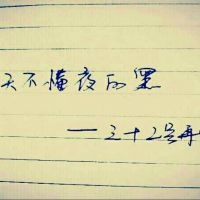 天不懂夜的黑
——三十二号再